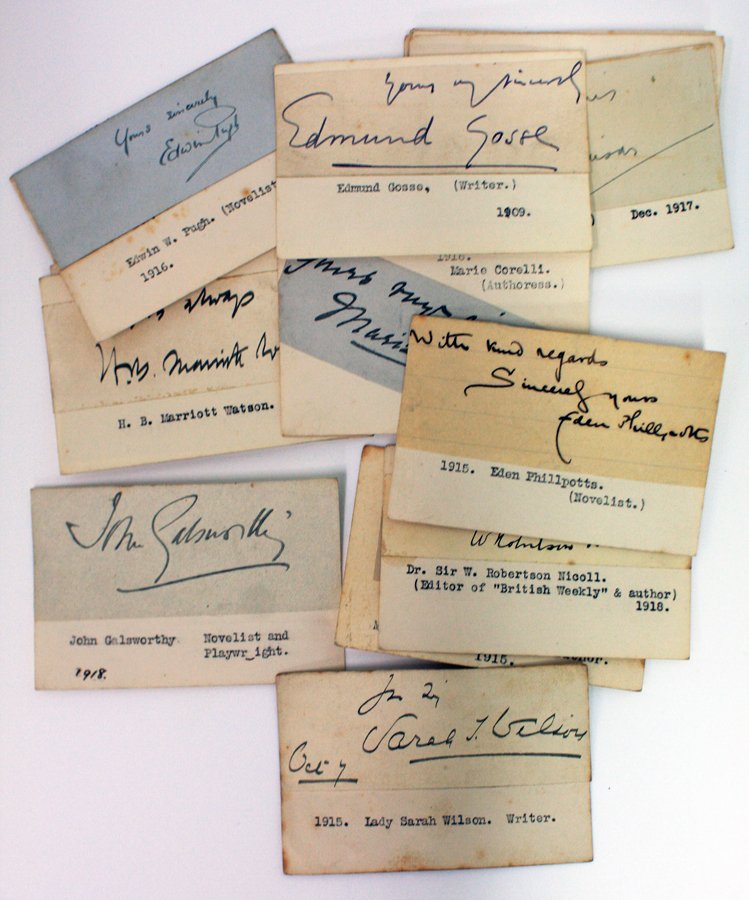 Yours sincerely
Edwin Pugh
Edwin W. Pugh. (Novelist
1916.
Yours very sincerely
Edmund Gosse
Edmund Gosse, (Writer.)
1909.
) Dec. 1917.
1916.
Marie Corelli.
(Authoress.)
always
H. B. Marriott W
H. B. Marriott Watson.
With kind regards
Sincerely yours
Eden Phillpotts
1915. Eden Phillpotts.
(Novelist.)
John Galsworthy
John Galsworthy Novelist and
Playwr_ight.
1918.
W Robertson N
Dr. Sir W. Robertson Nicoll.
(Editor of "British Weekly" & author)
1918.
1915.
Sarah I. Wilson
Oct 7
1915. Lady Sarah Wilson. Writer.